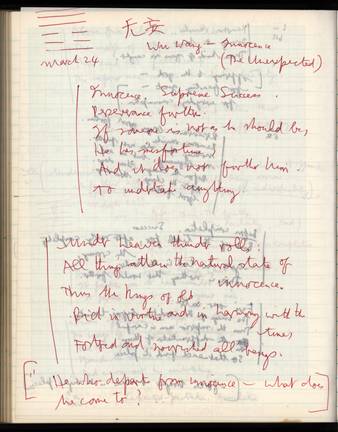 无妄
Wu Wang - Innocence
March 24 (The Unexpected)
Innocence. Supreme Success.
Perseverance furthers.
If someone is not as he should be,
He has misfortune
And it does not further him
to undertake anything
Under heaven thunder rolls:
All things attain the natural state of
innocence.
Thus the kings of old
Rich in virtue and in harmony with the
times
Fostered and nourished all beings.
["He who departs from innocence - what does
he come to?"]